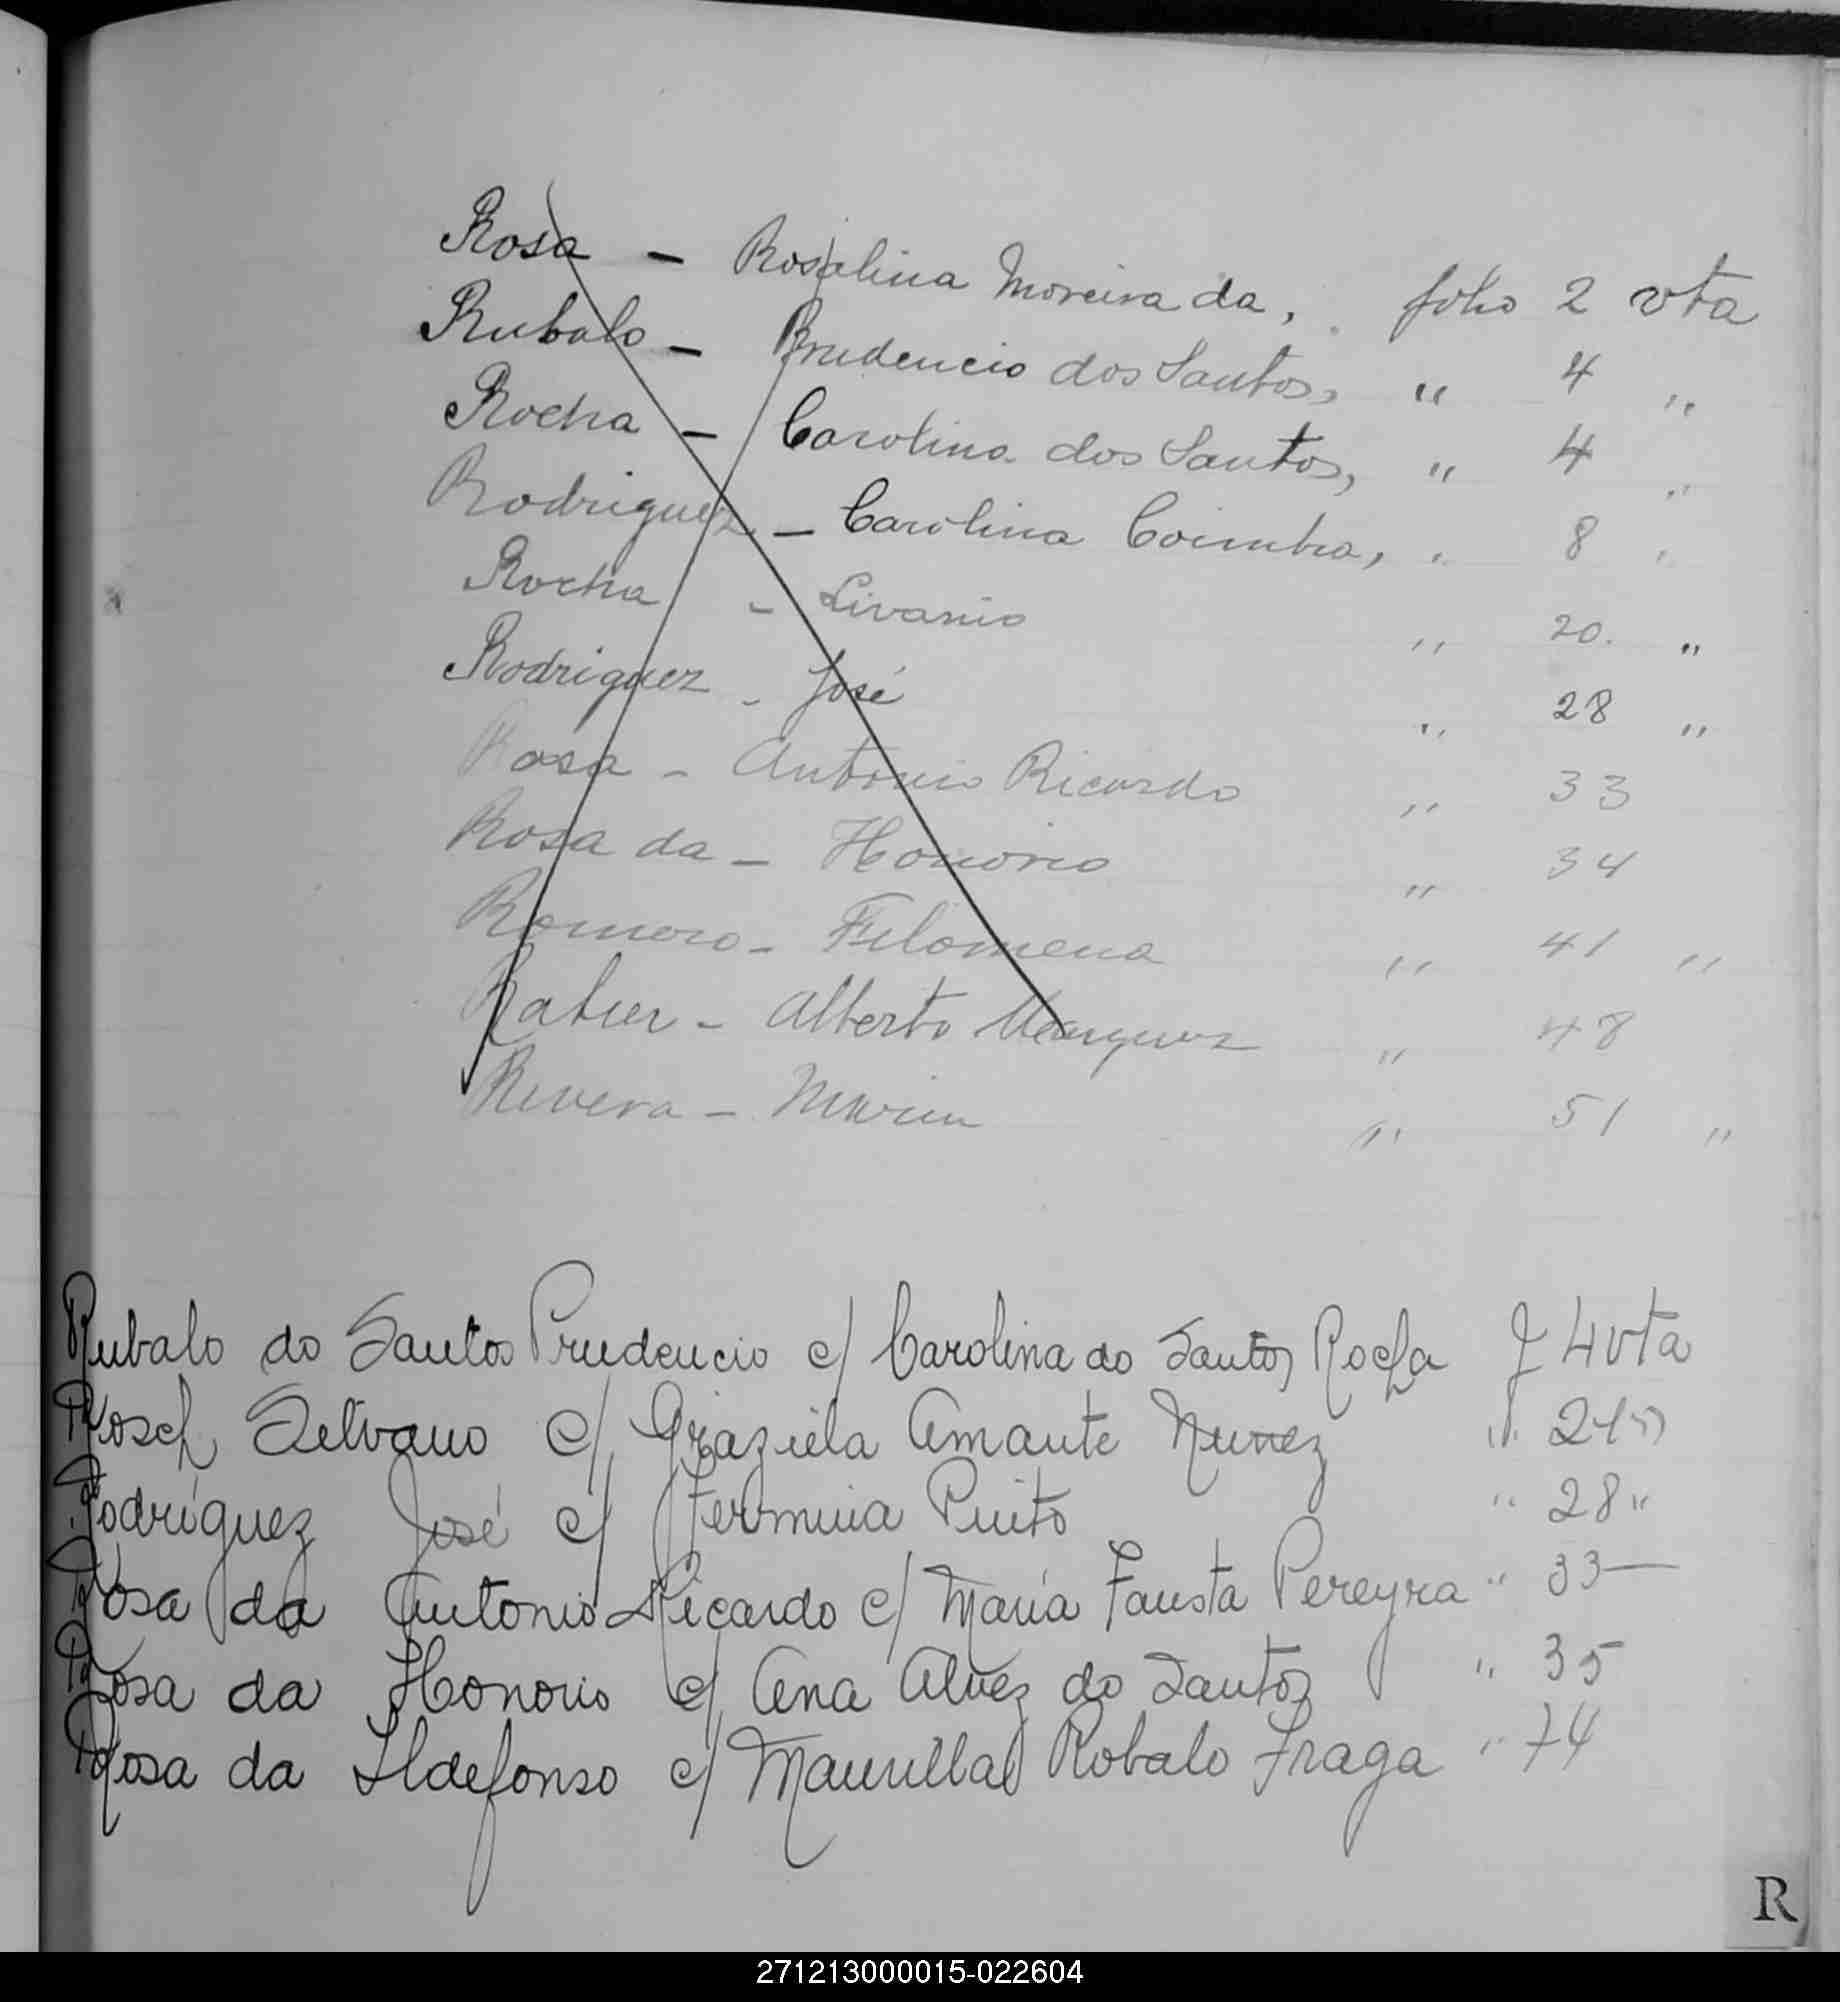 Rosa - Rosalina Moreira da, folio 2 vta
Rubalo - Prudencio dos Santos, " 4 "
Rocha - Carolina dos Santos, " 4 "
Rodriguez - Carolina Coimbra, " 8 "
Rocha - Livanio " 20. "
Rodriguez - José " 28 "
Rosa - Antonio Ricardo " 33
Rosa da - Honorio " 34
Romero - Filomena " 41 "
Ratier - Alberto Marquez " 48
Rivera - " 51 "
Rubalo do Santos Prudencio c/ Carolina do Santos Rocha F 4 vta
Rosch Silvano c/ Graziela Amante Nunez " 21 "
Rodríguez José c/ Fermina Pinto " 28 "
Rosa da Antonio Ricardo c/ María Fausta Pereyra " 33 —
Rosa da Honorio c/ Ana Alvez do Santos " 35
Rosa da Ildefonso c/ Maurilla Robalo Fraga " 74
R
271213000015-022604